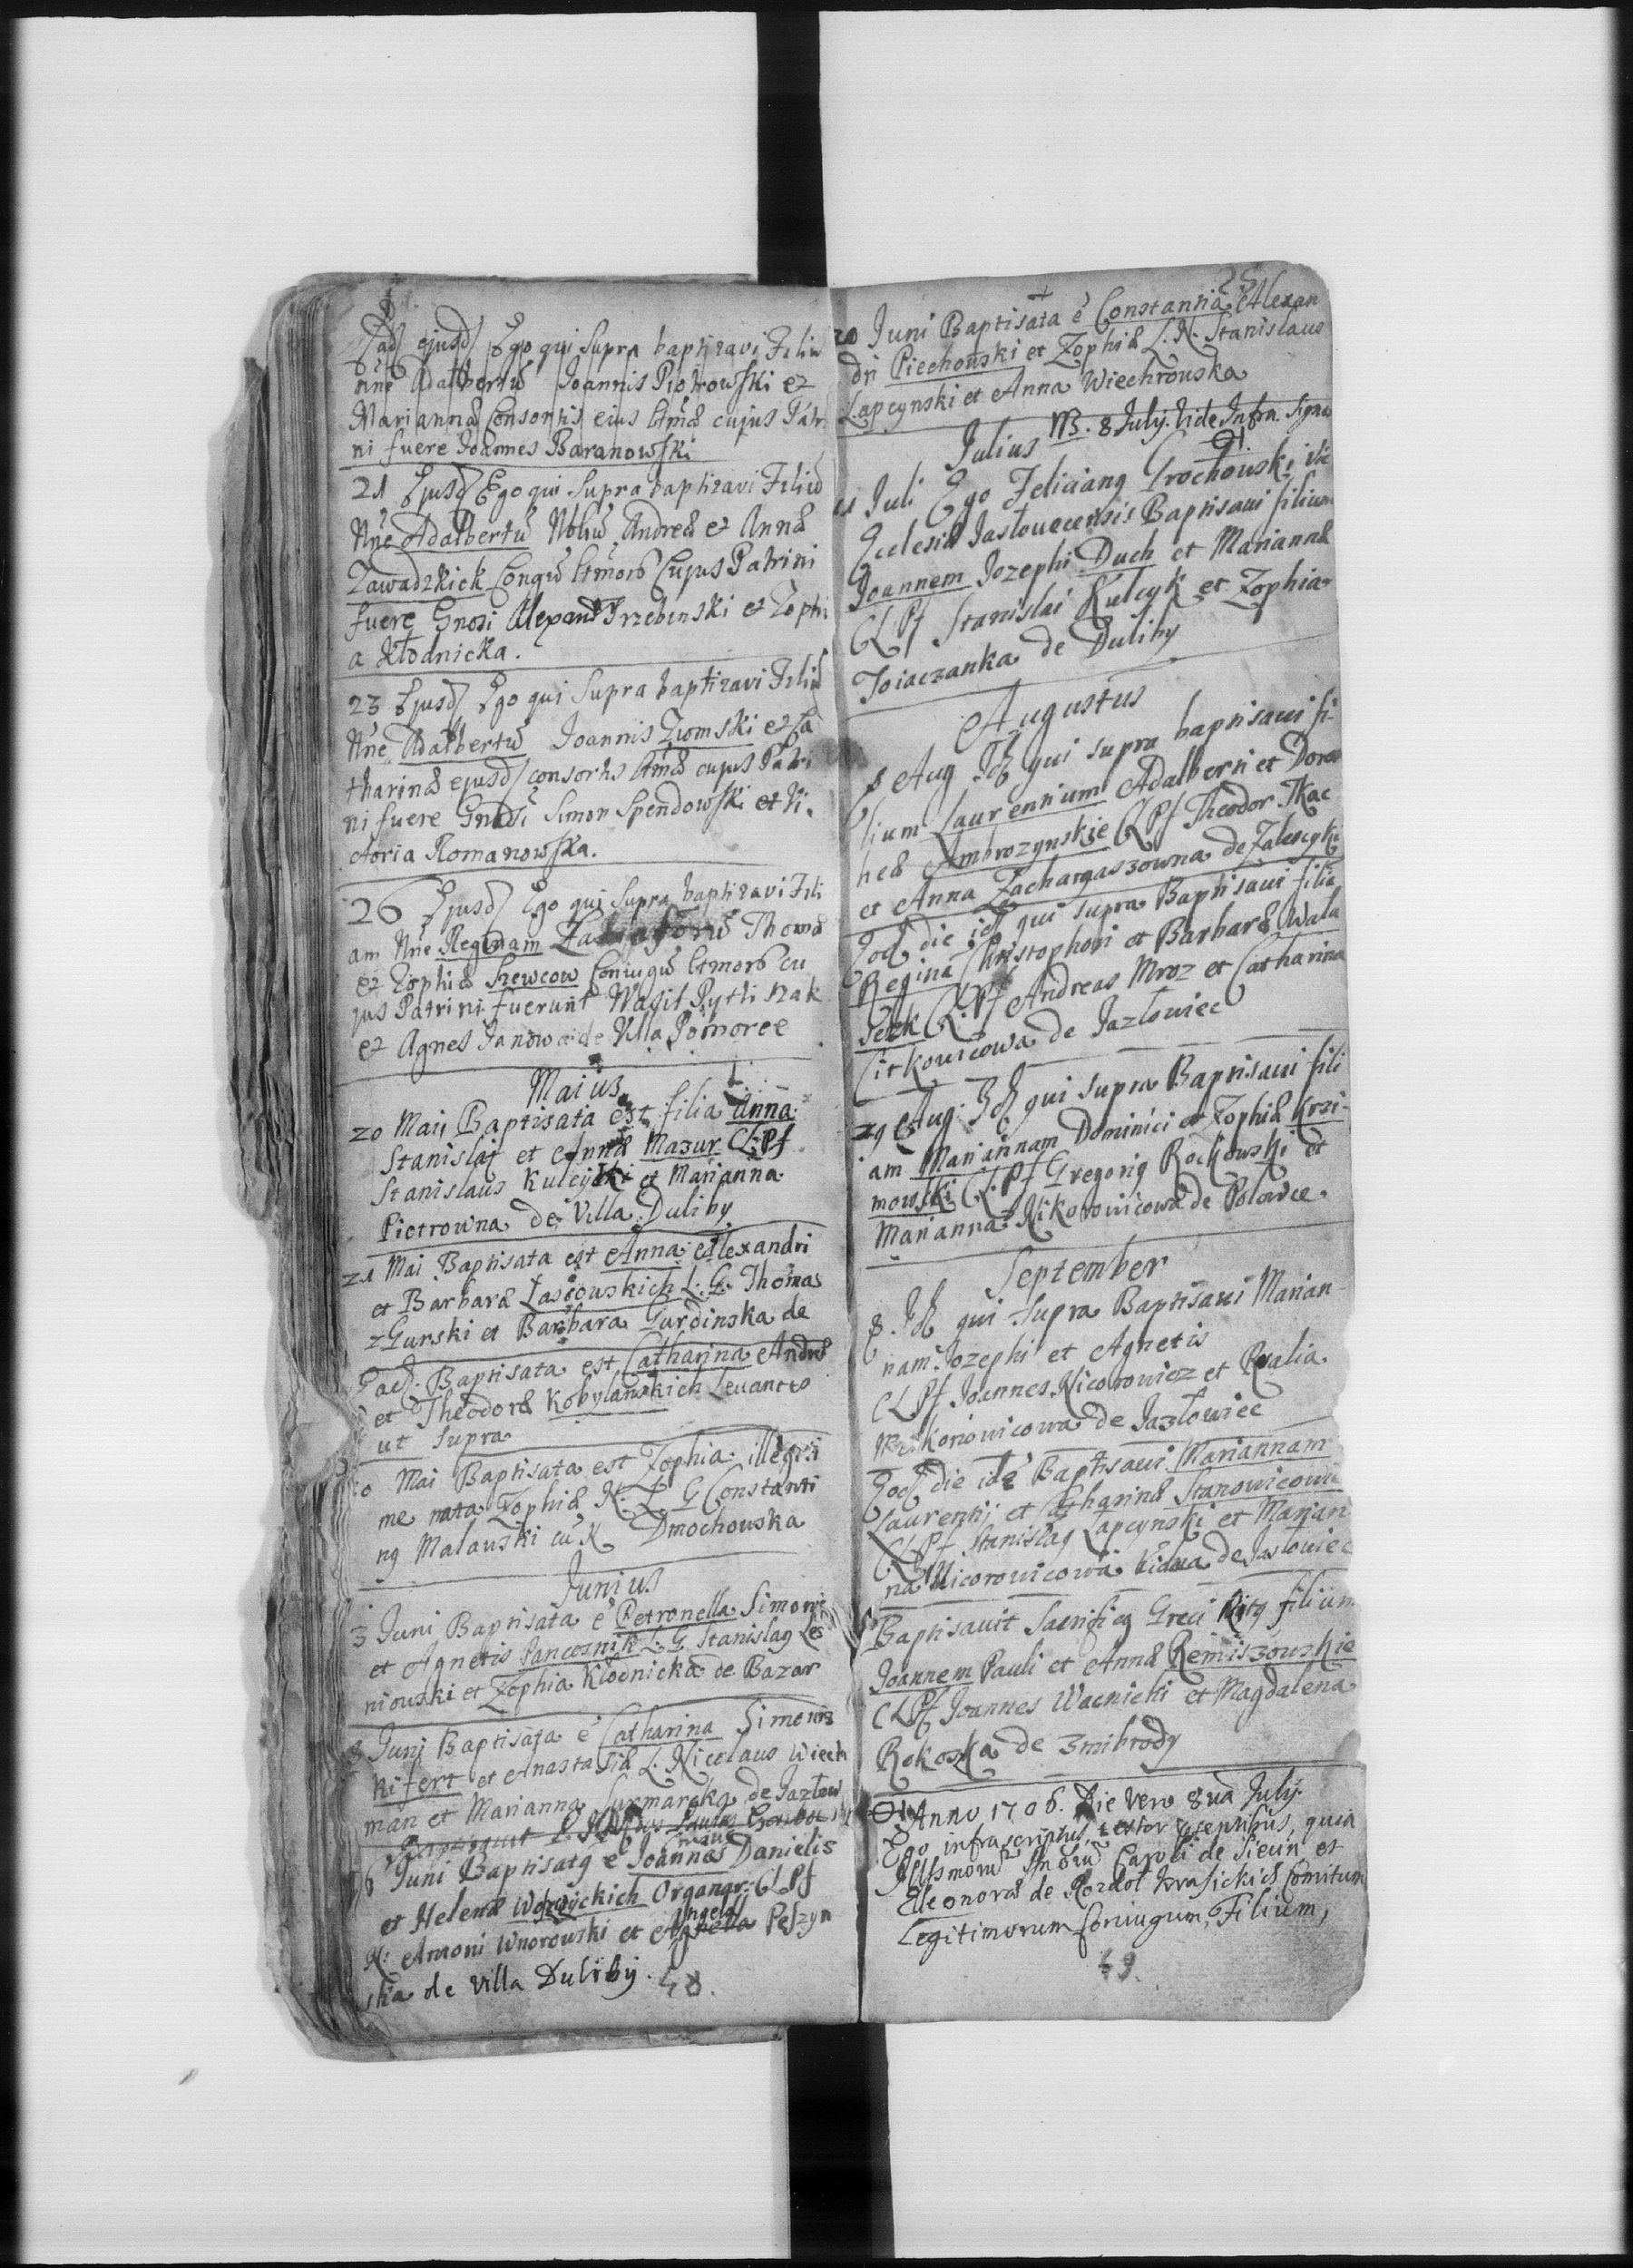 Ead ejusd Ego qui Supra baptizavi Filiū
nne Adalbertū Joannis Piotrowski et
Mariannæ Consortis eius ltmæ cujus Patri
ni fuere Joannes Baranowski
21 Ejusd Ego qui Supra baptizavi Filiū
Nne Adalbertū Nobiliū Andreæ et Annæ
Zawadzkich Congū ltmorū Cujus Patrini
fuere Gnosi Alexand Trzebinski et Zophi
a Kłodnicka.
23 Ejusd Ego qui Supra baptizavi Filiū
Nne Adalbertū Joannis Zwomski et Ca
tharinæ ejusd consortis ltmæ cujus Patri
ni fuere Gnosi Simon Spendowski et Vi
ctoria Romanowska.
26 Ejusd Ego qui Supra baptizavi Fili
am Nne Reginam Thomæ
et Zophiæ Szewcow Coniugū ltmorū cu
jus Patrini fuerunt Wasil Pytli
et Agnes Janowa de Villa Pomorce
Maius
20 Maij Baptisata est filia Anna
Stanislai et Annæ Mazur CLPf
Stanislaus Kulcycki et Marianna
Piotrowna de Villa Duliby
21 Mai Baptisata est Anna Alexandri
et Barbaræ Lascowskich L. G. Thomas
zGurski et Barbara Gurdinska de
Ead. Baptisata est Catharina Andreæ
et Theodoræ Kobylanskich Levantes
ut Supra
Mai Baptisata est Zophia illegiti
me nata Zophiæ N. L G Constanti
ng Malauski cū N Dmochouska
Junius
3 Juni Baptisata ē Petronella Simoni
et Agnetis L: G Stanislag Les
niouski et Zophia Klodnicka de Bazar
8 Junj Baptisata ē Catharina Simonis
Kifert et Anastasiæ L. Nicolaus Wiech
man et Marianna de Jazlow
Juni Baptisatg ē Joannes Danielis
et Helenæ Organar: CLPf
N: Antoni Wnorowski et Angela Peszyn
ska de Villa Duliby.
48.
25
20 Juni Baptisata ē Constantia Alexan
dri Piechowski et Zophiæ L. N. Stanislaus
Lapcynski et Anna Wiechrouska
Julius NB. 8 July. Vide Infra. signa
Juli Ego Feliciang Grochouski Vic
Ecclesiæ Jasłovecensis Baptisaui filium
Joannem Jozephi Duch et Mariannæ
CLPf Stanislai Kulcyk et Zophia
de Duliby
Augustus
8 Aug Id qui supra baptisaui fi-
lium Laurentium Adalberti et Doro
heæ Ambrozynskie CLPf Theodor Tkac
et Anna Zachargaszowna de Zalescyki
Eod die id qui supra Baptisaui filiā
Regina Christophori et Barbaræ Wala
sezk CLPf Andreas Mroz et Catharina
Citkowicowa de Jazłowiec
29 Aug: Id qui supra Baptisaui fili
am Mariannam Dominici et Zophiæ Krzi-
mowski CLPf Gregorig Rockowski et
Marianna Nikorowicowa de Polowce.
September
8. Id qui supra Baptisaui Marian-
nam Jozephi et Agnetis
CLPf Joannes Nicorowicz et Rosalia
de Jazłowiec
Eod die idē Baptisaui Mariannam
Laurentij et Catharinæ Stanowicowie
CLPf Stanislag Lapcynski et Marian
na Nicorowicowa Vidua de Jaslowiec
Baptisauit Sacrificg Greci Ritg filium
Joannem Pauli et Annæ Remiszouskie
CLPf Joannes Wacnicki et Magdalena
Rokoszka de 3mibrody
Anno 1706. Die Vero 8va July.
Ego infrascriptus, testor presentibus, quia
Illssmorū Caroli de Siecin et
Eleonoræ de Rozdoł Krasickich Comitum
Legitimorum Coniugum, Filium,
49.